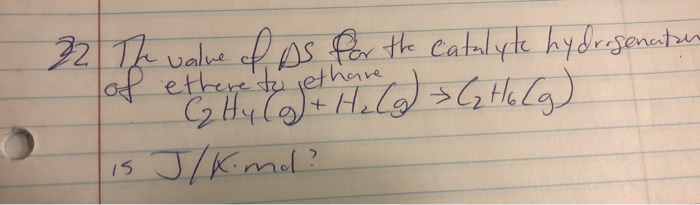 22 The value of ΔS for the catalytc hydrogenation
of ethene to ethane
C₂H₄(g) + H₂(g) → C₂H₆(g)
is J/K·mol?